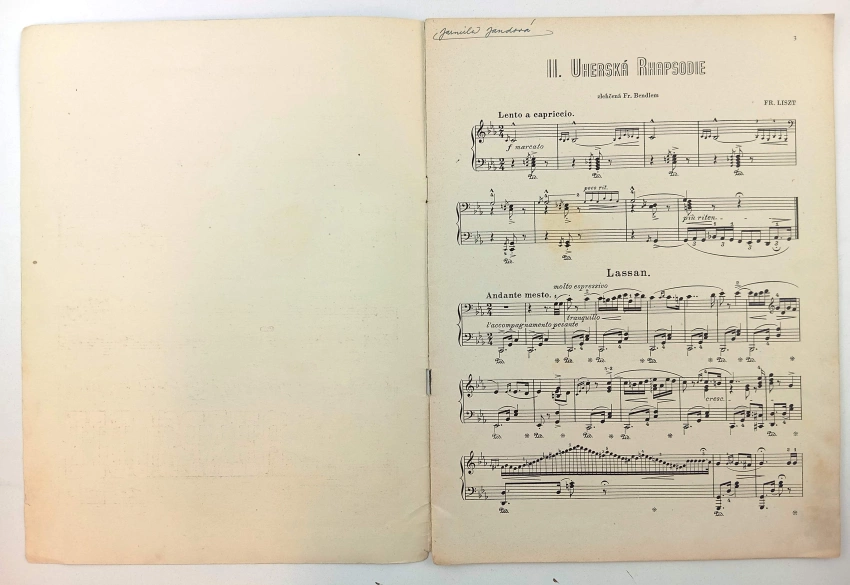 Jandová
3
II. UHERSKÁ RHAPSODIE
zlehčená Fr. Bendlem
FR. LISZT
Lento a capriccio.
f marcato
poco rit.
più riten.
Lassan.
molto espressivo
Andante mesto.
tranquillo
l'accompagnamento pesante
cresc.